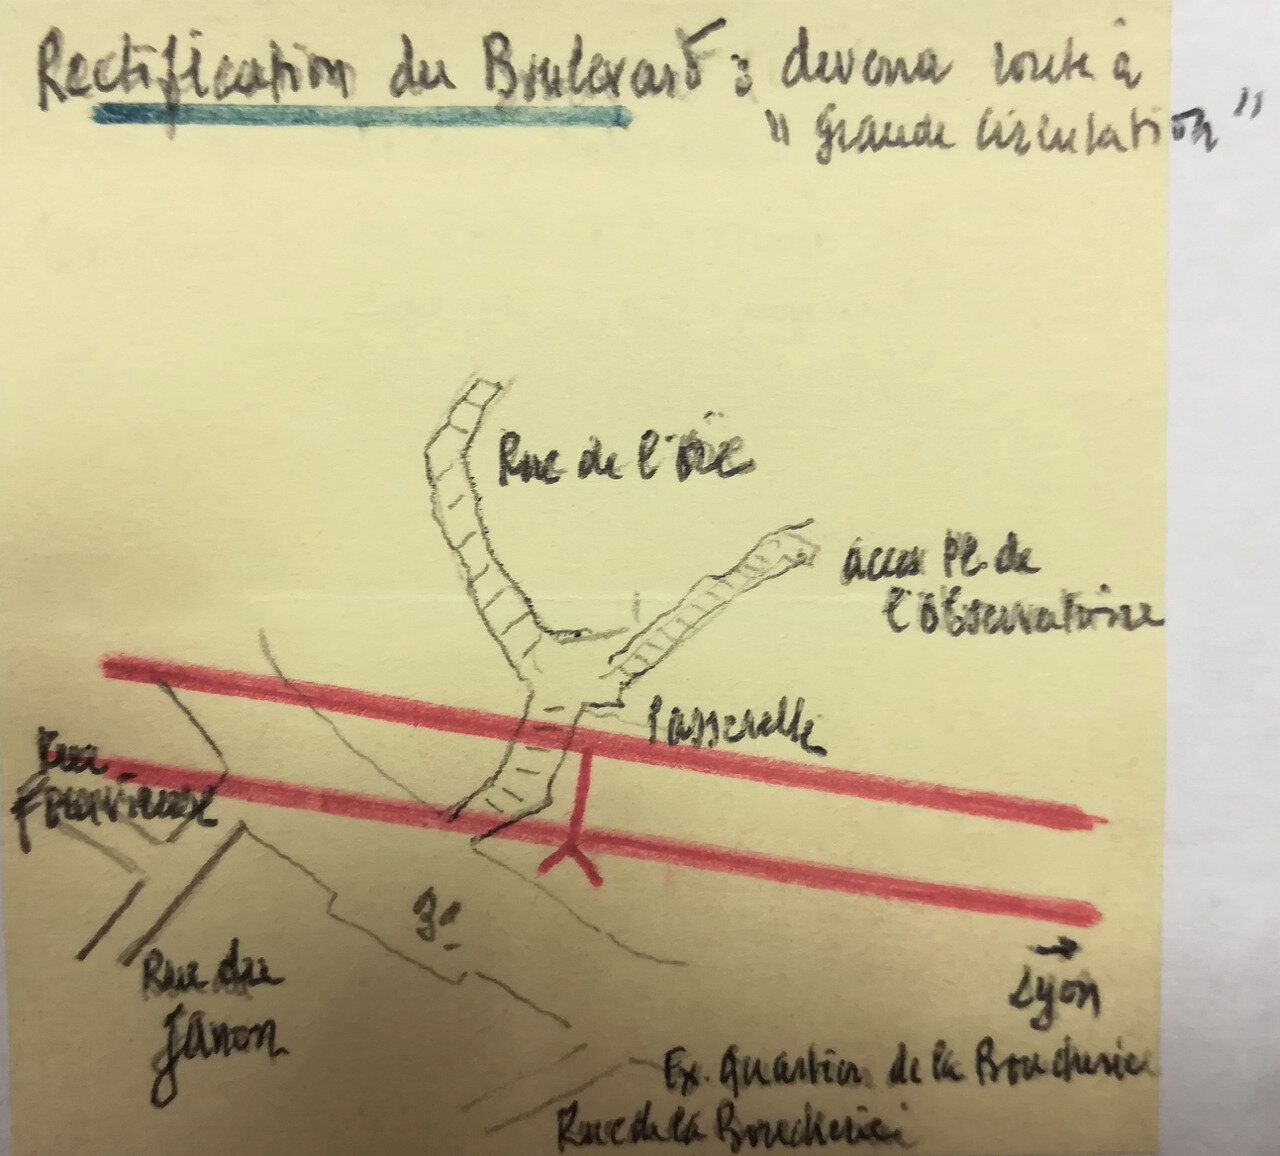 Rectification du Boulevard : devenu route à
" Grande Circulation "
Rue de l'Oïe
acces Pl. de
l'Observatoire
Passerelle
Rue
Rue du
Janon
Lyon
Ex. Quartier de la Boucherie
Rue de la Boucherie